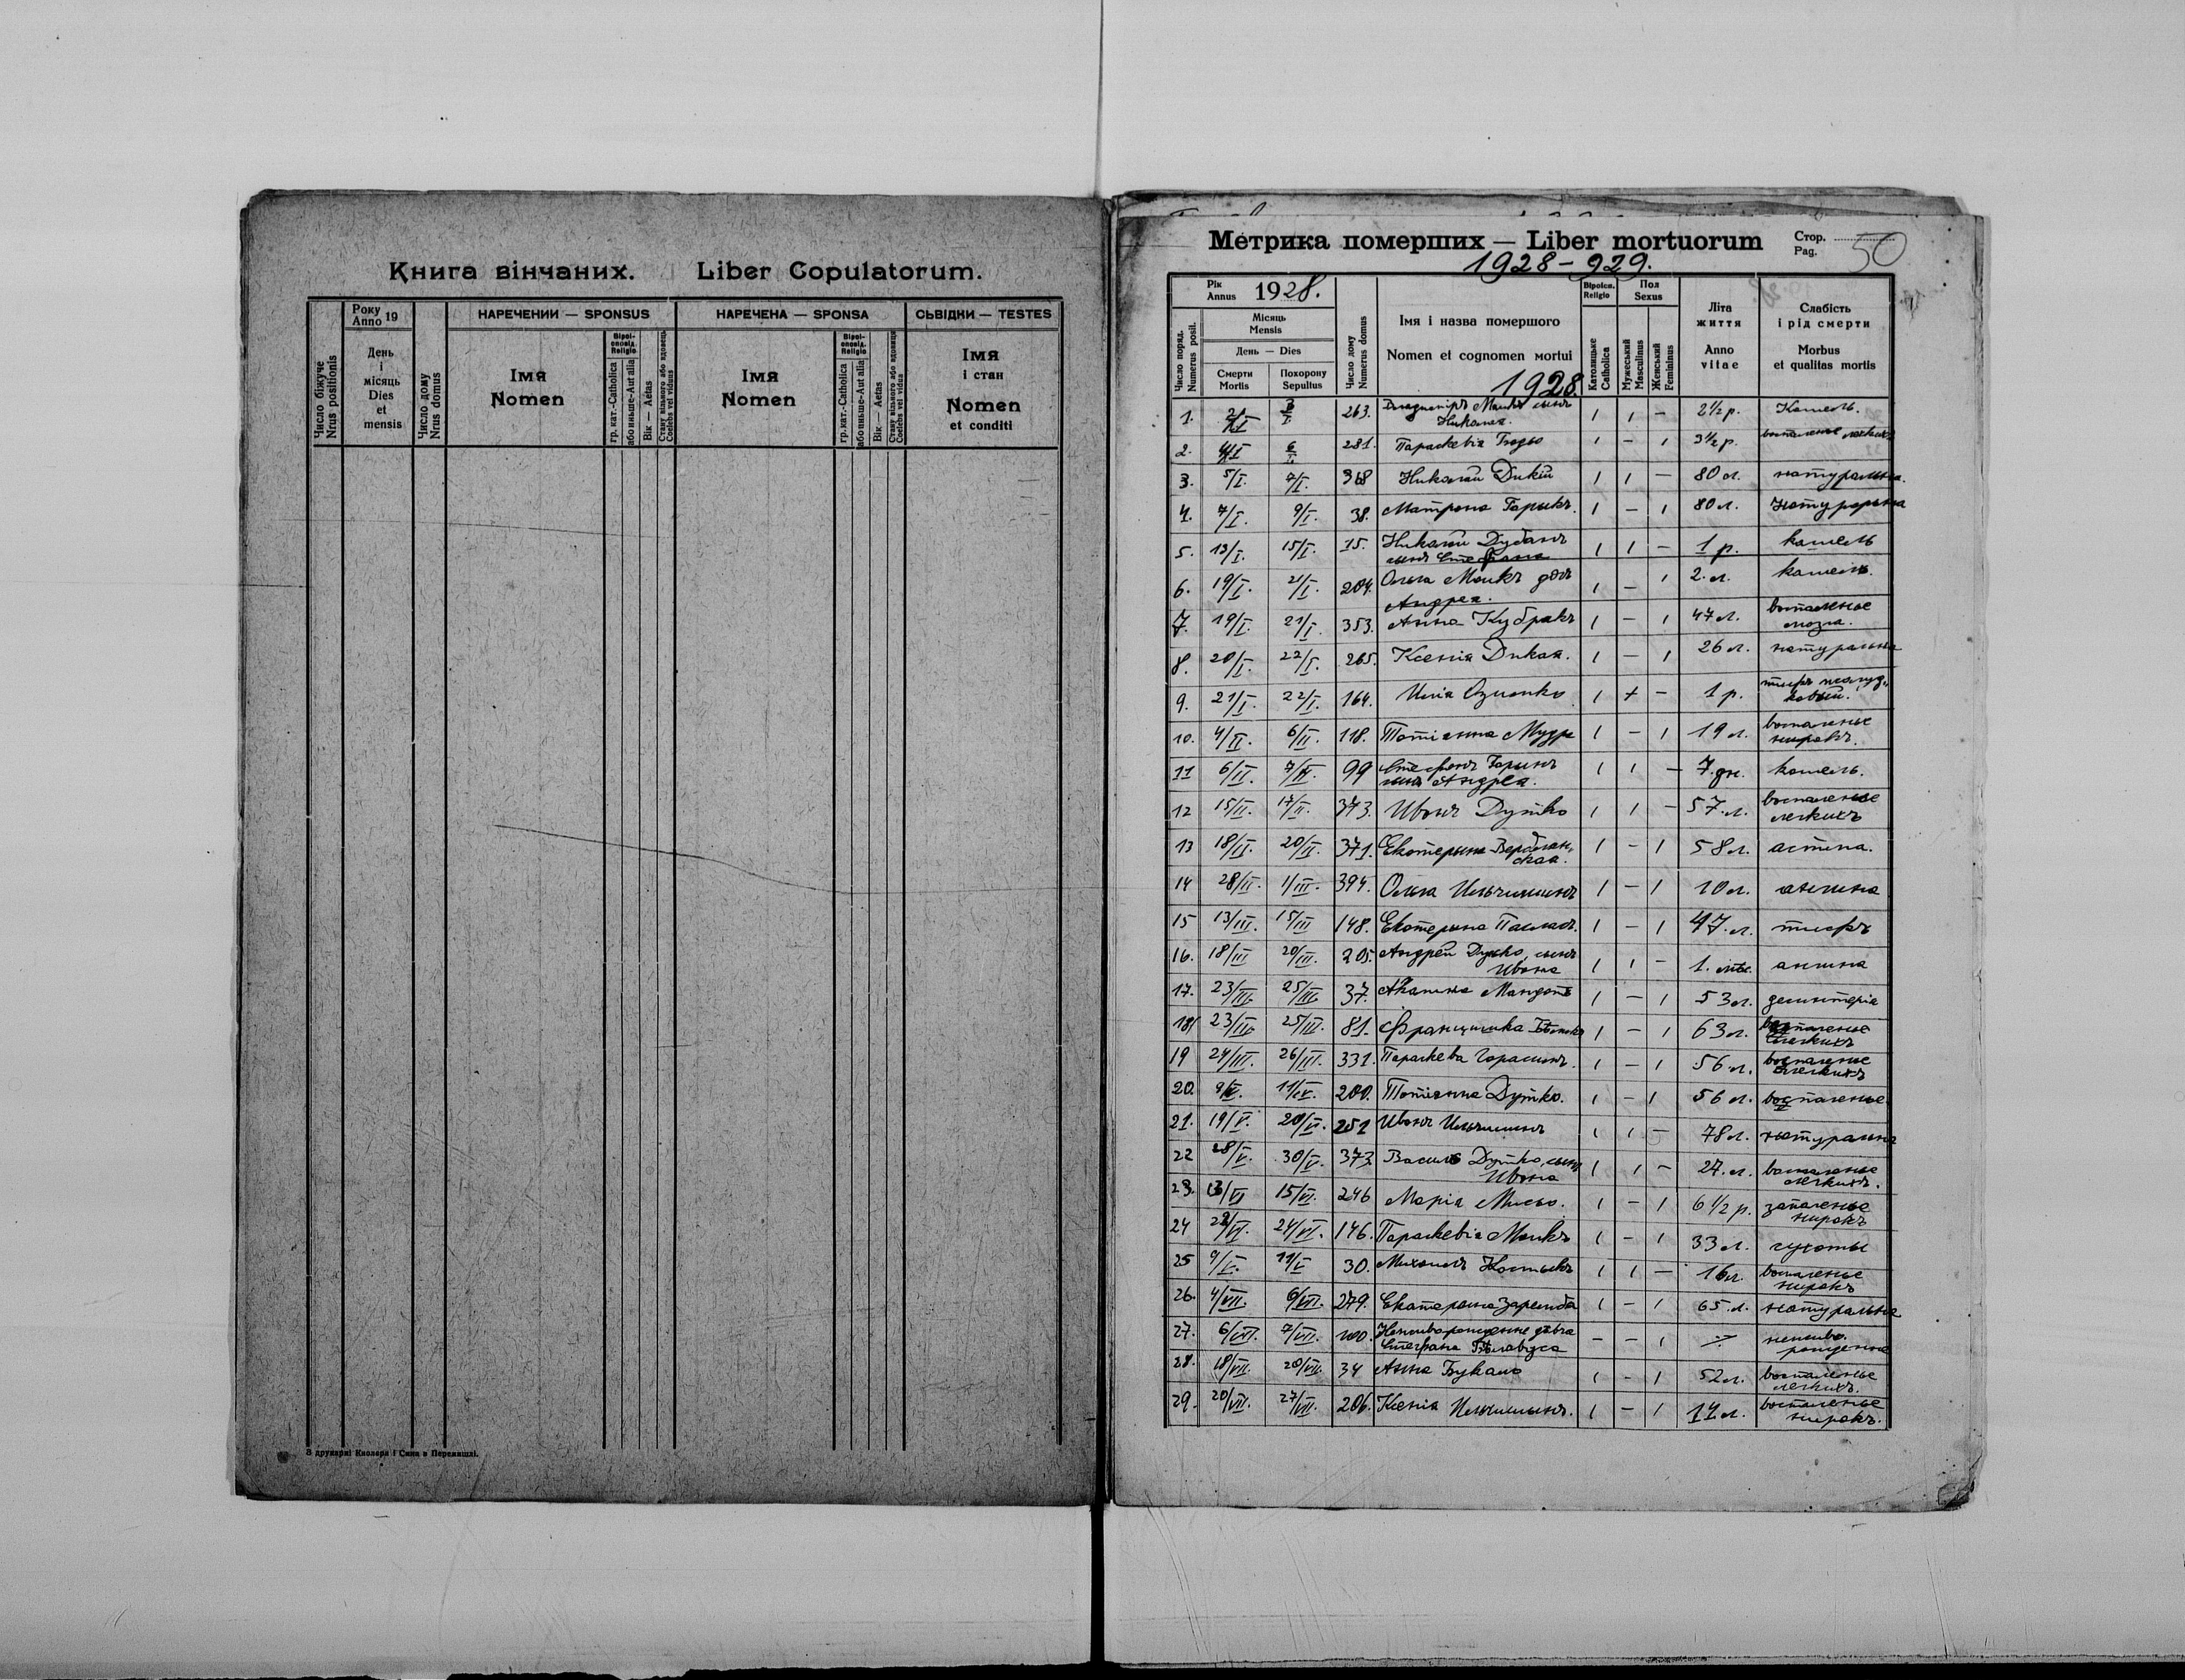 Книга вінчаних. Liber Copulatorum.
Число біжуче Nrus positionis
Року Anno 19
День і місяць Dies et mensis
Число дому Nrus domus
НАРЕЧЕНИЙ — SPONSUS
Імя Nomen
Віроісповід. Religio
гр. кат.-Catholica
або иньше-Aut alia
Вік — Aetas
Стану вільного або вдовець Coelebs vel viduus
НАРЕЧЕНА — SPONSA
Імя Nomen
Віроісповід. Religio
гр. кат.-Catholica
або иньше-Aut alia
Вік — Aetas
Стану вільного або вдовиця Coelebs vel vidua
СЬВІДКИ — TESTES
Імя і стан
Nomen et conditi
З друкарні Кнолєра і Сина в Перемишлі.
Метрика померших — Liber mortuorum
Стор. Pag. 50
1928-929.
Рік Annus 1928.
Число поряд. Numerus posit.
Місяць Mensis
День — Dies
Смерти Mortis
Похорону Sepultus
Число дому Numerus domus
Імя і назва помершого
Nomen et cognomen mortui
1928.
Віроісп. Religio
Католицьке Catholica
Пол Sexus
Мужеський Masculinus
Женський Femininus
Літа життя
Anno vitae
Слабість і рід смерти
Morbus et qualitas mortis
1. 263. сынъ Николая. 1 1 – 2½ р. Кашель.
2. 281. Параскевія 1 – 1 3½ р. воспаленье легкихъ
3. 5/I. 7/I. 368 Николай Дикій 1 1 – 80 л. натуральна.
4. 7/I. 9/I. 38. Матрона 1 – 1 80 л. Натуральна
5. 13/I. 15/I. 15. Николай сынъ Стефана 1 1 – 1 р. кашель
6. 19/I. 21/I. 204. Ольга Андрея. 1 – 1 2. л. кашель.
7. 19/I. 21/I. 353. Анна Кубракъ 1 – 1 47 л. воспаленье мозга.
8. 20/I. 22/I. 265. Ксенія Дикая. 1 – 1 26 л. натуральна
9. 21/I. 22/I. 164. Илія 1 + – 1 р. тифъ
10. 4/II. 6/II. 118. Татіанна Мудра 1 – 1 19 л. воспаленье нирокъ.
11 6/II. 7/II. 99 Стефанъ сынъ Андрея. 1 1 – 7. дн. кашель.
12 15/II. 17/II. 373. Иванъ Дутко 1 1 – 57. л. воспаленье легкихъ
13 18/II. 20/II. 371. Екатерына 1 – 1 58 л. астма.
14 28/II. 1/III. 394. Ольга Ильчишинъ 1 – 1 10 л. ангина
15 13/III. 15/III 148. Екатерина 1 – 1 47. л. тифъ
16. 18/III 20/III. 205. Андрей сынъ Ивана 1 1 – 1. ангина
17. 23/III. 25/III. 37. 1 – 1 53 л.
18 23/III. 25/III. 81. Францишка 1 – 1 63 л. воспаленье легкихъ
19 24/III. 26/III. 331. Параскева 1 – 1 56 л. воспаленье легкихъ
20. 11/IV. 200. Татіанна Дутко. 1 – 1 56 л. воспаленье
21. 19/V. 20/V. 251 Иванъ Ильчишинъ 1 1 – 78 л. натуральна
22 28/V. 30/V. 373. Василь Дутко, сынъ Ивана 1 1 – 27. л. воспаленье легкихъ.
23. 13/VI 15/VI. 246 Марія 1 – 1 6 1/2 р. запаленье нирокъ
24 22/VI. 24/VI. 146. Параскевія 1 – 1 33 л. сухоты
25 9/V. 11/V 30. Михаилъ Костыкъ 1 1 – 16 л. воспаленье нирокъ
26. 4/VII. 6/VII. 279. Екатерина Заремба 1 – 1 65. л. натуральна
27. 6/VII. 7/VII. 100. Стефана – – 1
28. 18/VII. 20/VII. 34 Анна 1 – 1 52 л. воспаленье легкихъ.
29. 20/VII. 27/VII. 206. Ксенія Ильчишынъ. 1 – 1 14 л. воспаленье нирокъ.